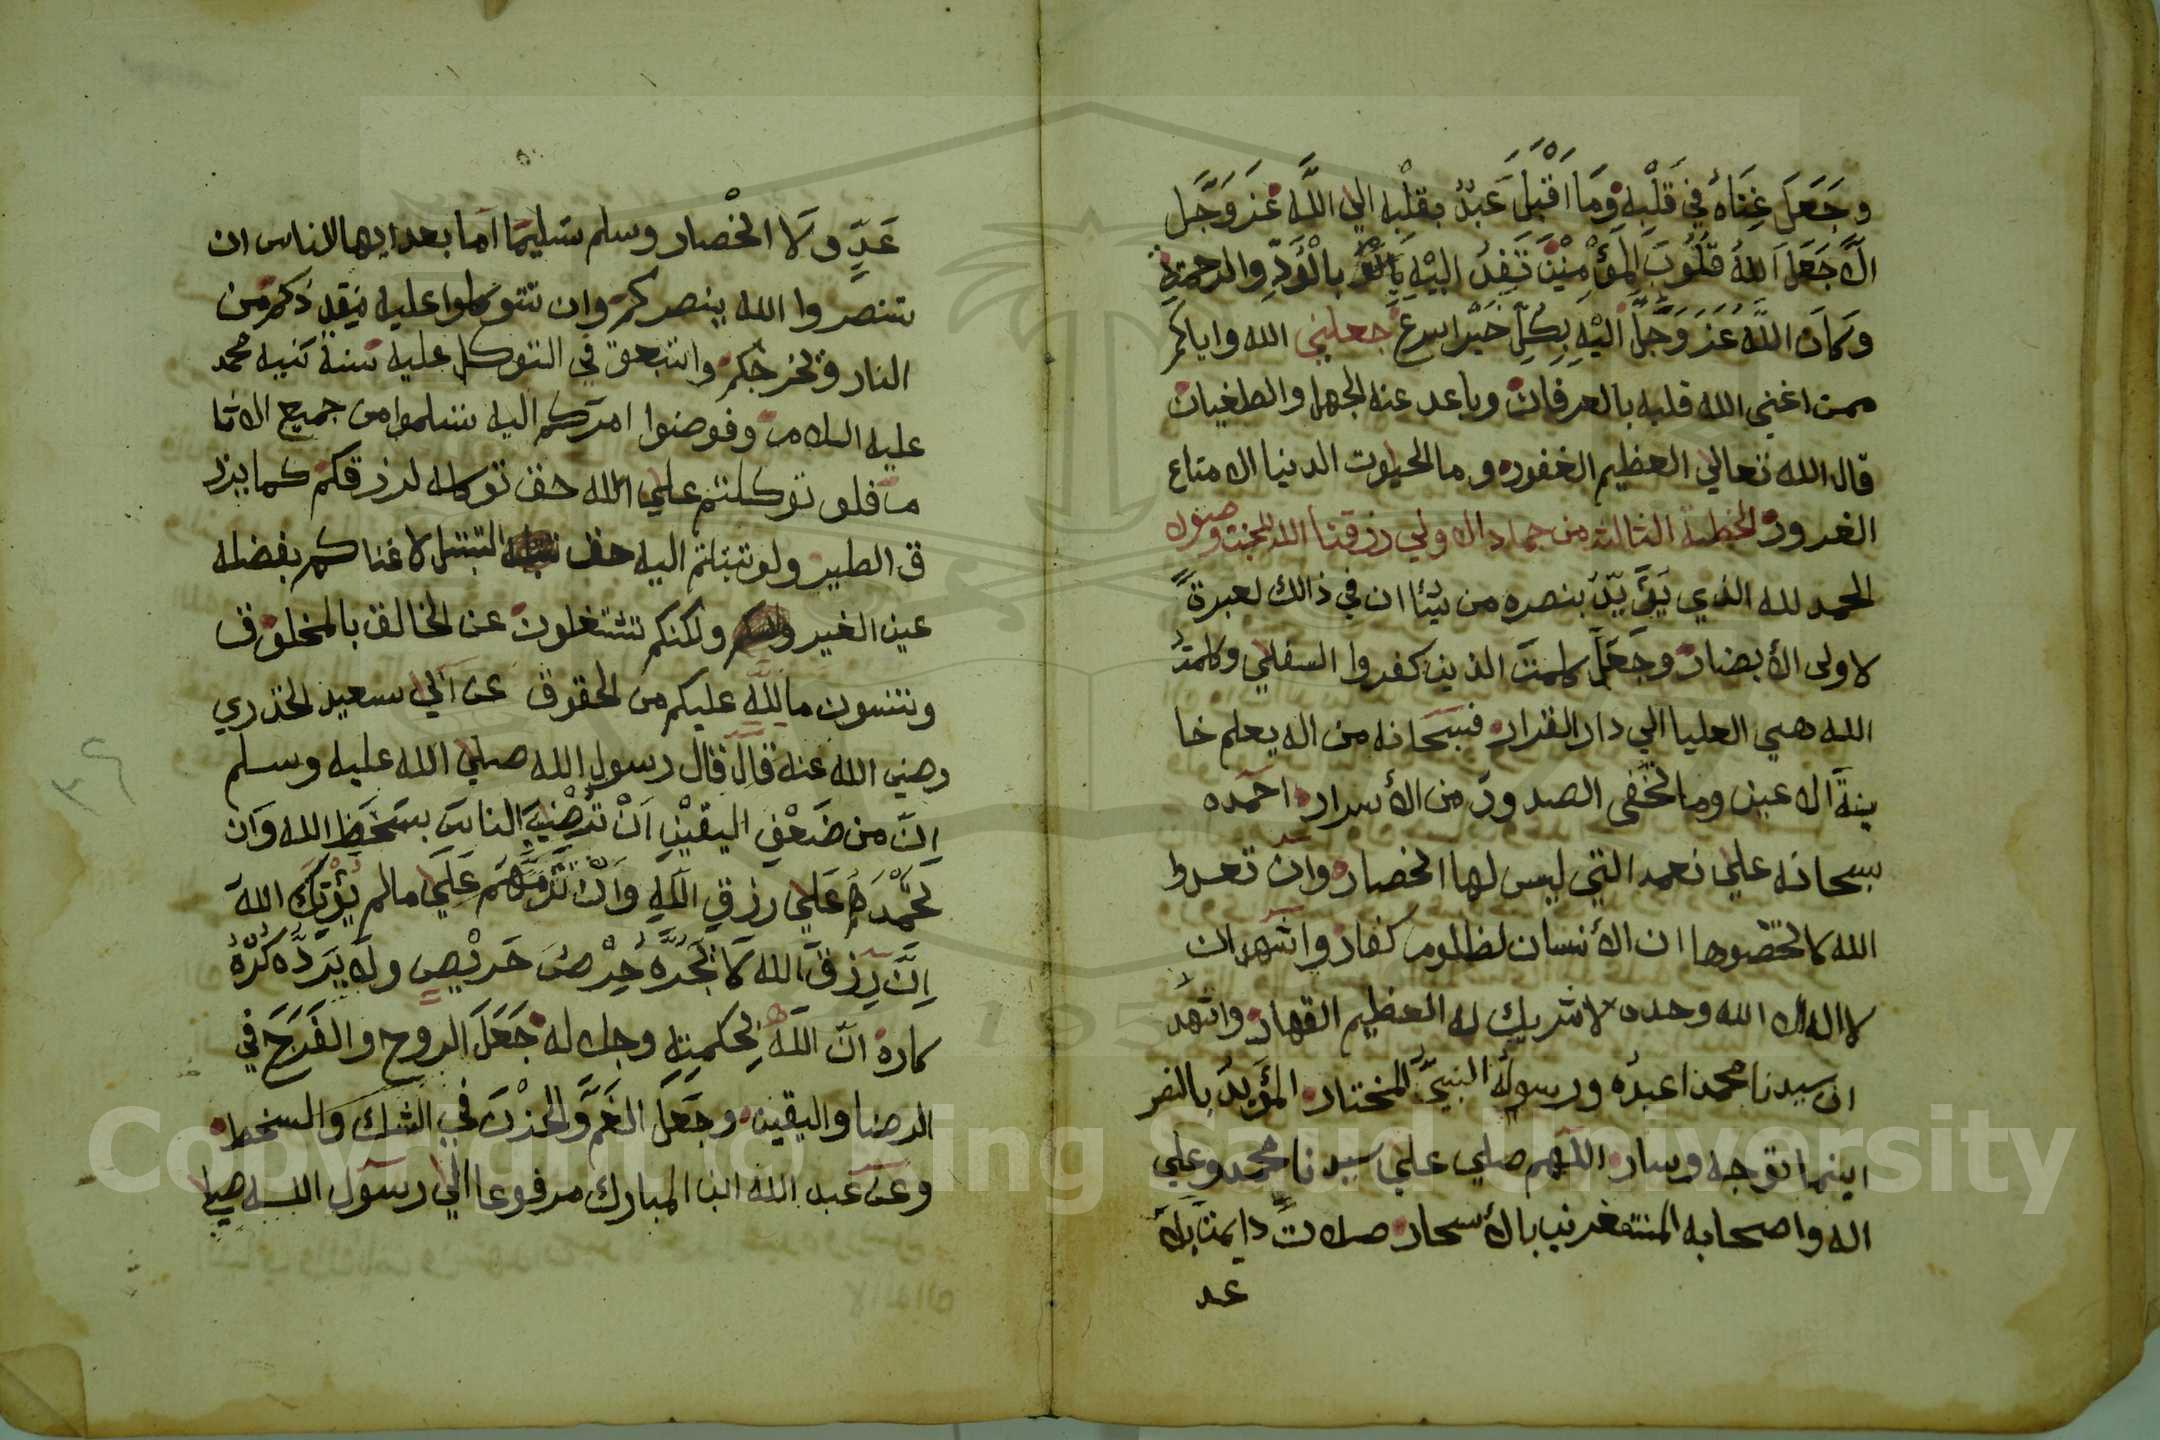 وجَعَلَ غِنَاهُ في قَلْبِهِ وَمَا اَقْبَلَ عَبْدٌ بقلبِه الي اللَّه عَزَ وَجَّل
الَّا جَعَلَ اللهُ قُلُوُبَ المؤْمِنْيْنَ تَفِدُ اليْهِ بالْوُدِّ والرحمة
وَكَانَ اللَّهُ عَزَ وَجَّلَّ اليْهِ بِكُلِّ خَيْرا سرع جعلني الله واياكم
ممن اغني الله قلبه بالعرفان وباعد عنه الجهل والطغيان
قال الله تعالي العظيم الغفور وما الحيوت الدنيا الا متاع
الغرور الخطبة الثالثة من جماد الاولي رزقنا الله الجنة
الحمد لله الذي يَؤَيّدُ بنصره من يشا ان في ذالك لعبرةً
لاولى الأبصار وجَعَلَ كلمتَ الذين كفروا السفلي وكلمتُ
الله هي العليا الي دار القرار فسبحانه من اله يعلم خا
ينةَ الا عين وما تخفى الصدور من الأسرار احمده
سبحانه علي نعمه التي ليس لها انحصار وان تعدوا
الله لا تحصوها ان الأنسان لظلوم كفار واشهد ان
لا اله الا الله وحده لا شريك له العظيم القهار واشهد
ان سيدنا محمدا عبدُه ورسولُه النبيُّ المختار المؤَيدُ بالنصر
اينما توجه وسار اللهم صلي علي سيدنا محمد وعلي
اله واصحابه المستغفرين بالأسحار صلاتً دايمتً بلا
عد
عَدٍّ ولَا انحْصار وسلم تسليمًا امَا بعد ايها الناس ان
تنصروا الله ينصركم وان تتوكلوا عليه ينقذكم من
النار ويخرجكم واتبعو في التوكل عليه سنة نبيه محمد
عليه السلام وفوضوا امركم اليه تسلموا من جميع الاثا
م فلو توكلتم علي الله حق توكله لرزقكم كما يرز
ق الطير ولو تبتلتم اليه حق التبتل لاغناكم بفضله
عين الغير ولكنكم تشتغلون عن الخالق بالمخلوق
وتنسون ما للَّه عليكم من الحقوق عن ابي سعيد الخدري
رضي الله عنه قال قال رسول الله صلي الله عليه وسلم
اِنّ من ضَعْفِ اليقيْنِ اَنْ تُرْضِيَ الناسَ بسَخَطِ الله وَان
تَحْمَدَهُم عَلَي رزقِ اللهِ وَانْ تَذِمَّهُم عَلَي مالم يُؤْتِكَ اللهَ
اِنَّ رِزقَ الله لَا يَجُرُّه حِرْصُ حَريْصٍ ولا يَردُّه كُرْهُ
كاره انّ اللَّهَ بحكمتِه وجلاله جَعَلَ الروح والفَرَجَ في
الرضا واليقين وجَعَلَ الغَمَّ والحزْنَ في الشك والسخط
وعن عبد الله ابن المبارك مرفوعا الي رسول الله صلي
Copyright © King Saud University